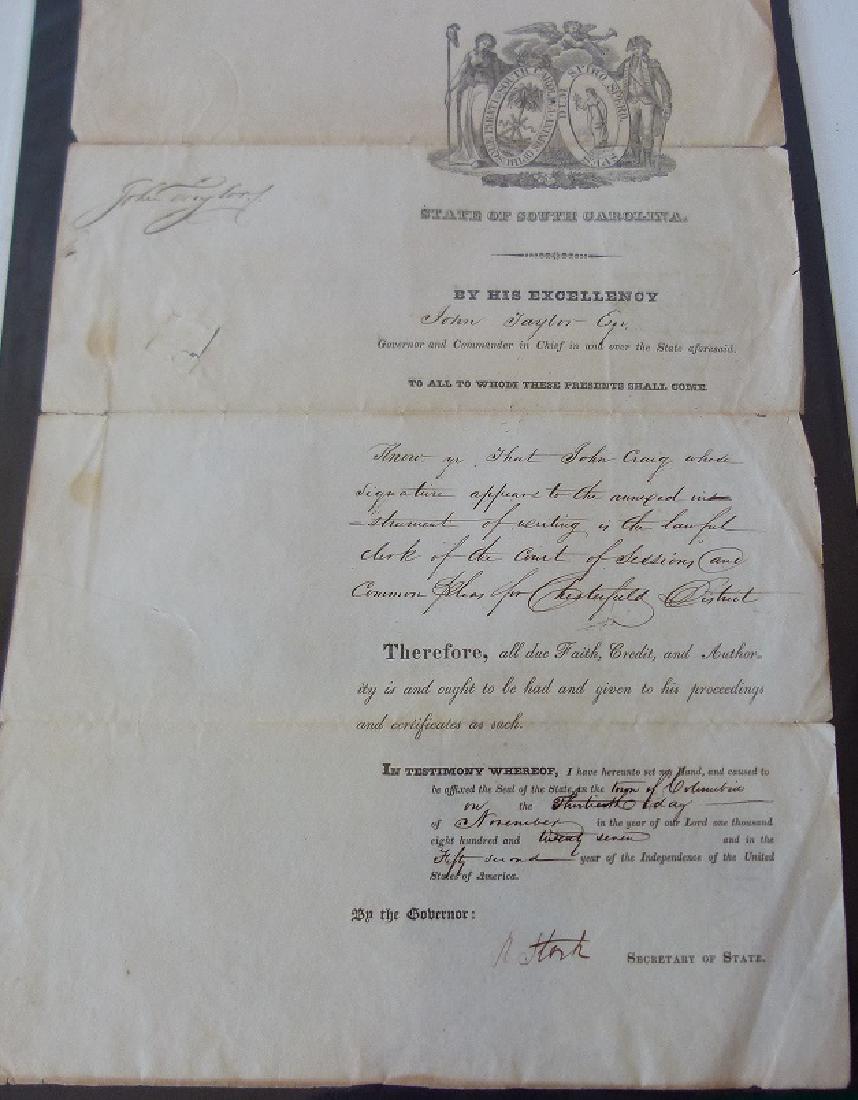 DUM SPIRO SPERO
SPES
STATE OF SOUTH CAROLINA.
John Taylor
BY HIS EXCELLENCY
John Taylor Esqr.
Governor and Commander in Chief in and over the State aforesaid.
TO ALL TO WHOM THESE PRESENTS SHALL COME
Know ye That John Craig whose
signature appears to the annexed in-
-strument of writing is the lawful
clerk of the Court of Sessions and
Common Pleas for Chesterfield District
Therefore, all due Faith, Credit, and Author-
ity is and ought to be had and given to his proceedings
and certificates as such.
IN TESTIMONY WHEREOF, I have hereunto set my Hand, and caused to
be affixed the Seal of the State in the town of Columbia
on the Thirtieth day
of November in the year of our Lord one thousand
eight hundred and twenty seven and in the
Fifty second year of the Independence of the United
States of America.
By the Governor:
Stark SECRETARY OF STATE.